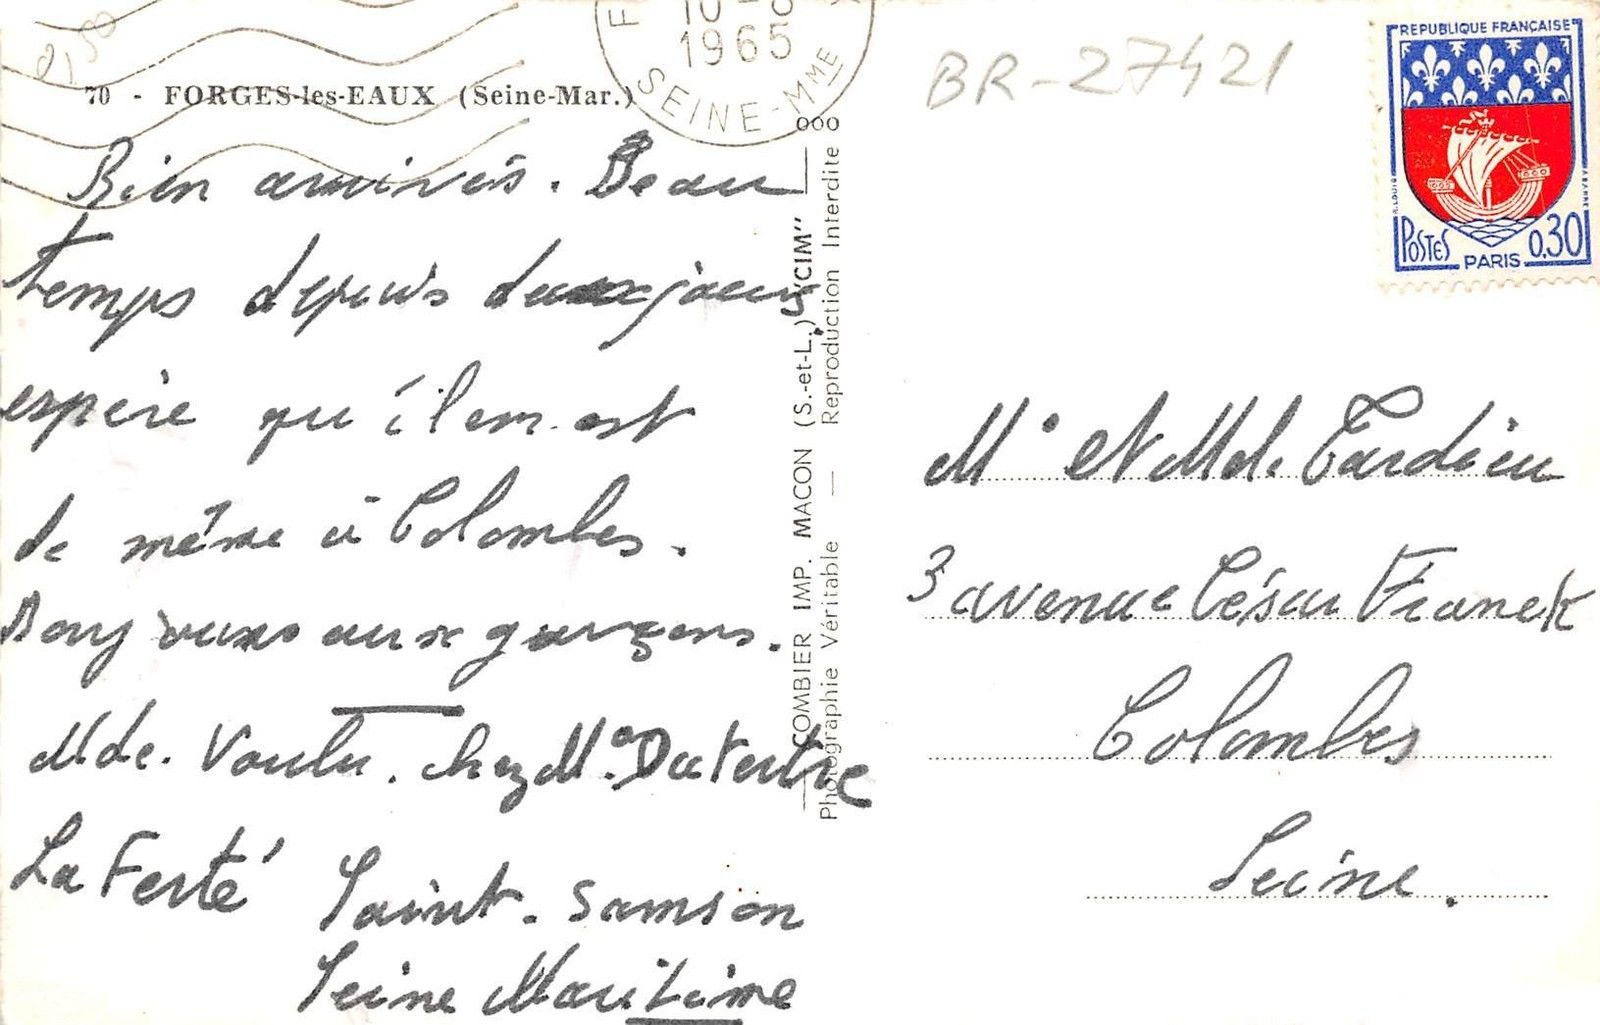 2,50
70 - FORGES-les-EAUX (Seine-Mar.)
1965
SEINE-MME
BR-27421
REPUBLIQUE FRANÇAISE
POSTES
0,30
PARIS
Bien arrivés. Beau
temps depuis deux jours
espère qu'il em est
de même à Colombes.
Bonjour aux garçons.
Mde. Voulu. chez Mr Dutertre
La Ferté Saint-Samson
Seine Maritime
COMBIER IMP. MACON (S.-et-L.) "CIM"
Photographie Véritable — Reproduction Interdite
Mr et Mde Tardieu
3 avenue César Franck
Colombes
Seine.